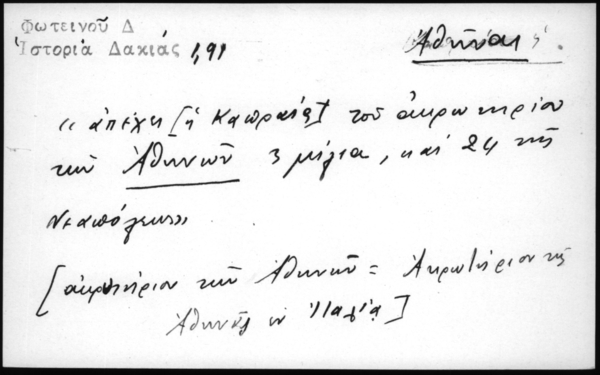 Φωτεινοῦ Δ
Ἱστορία Δακιάς 1,91
Ἀθῆναι
«ἀπέχει [ἡ Καπραία] τοῦ ἀκρωτηρίου
τῶν Ἀθηνῶν 3 μίλια, καὶ 24 τῆς
Νεαπόλεως»
[ἀκρωτήριον τῶν Ἀθηνῶν = Ἀκρωτήριον τῆς
Ἀθηνᾶς ἐν Ἰταλίᾳ]